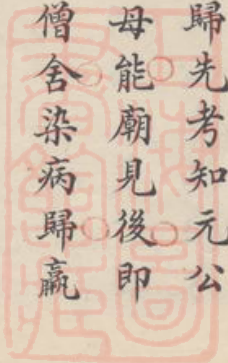 歸先考知元公
母能廟見後即
僧舍染病歸羸